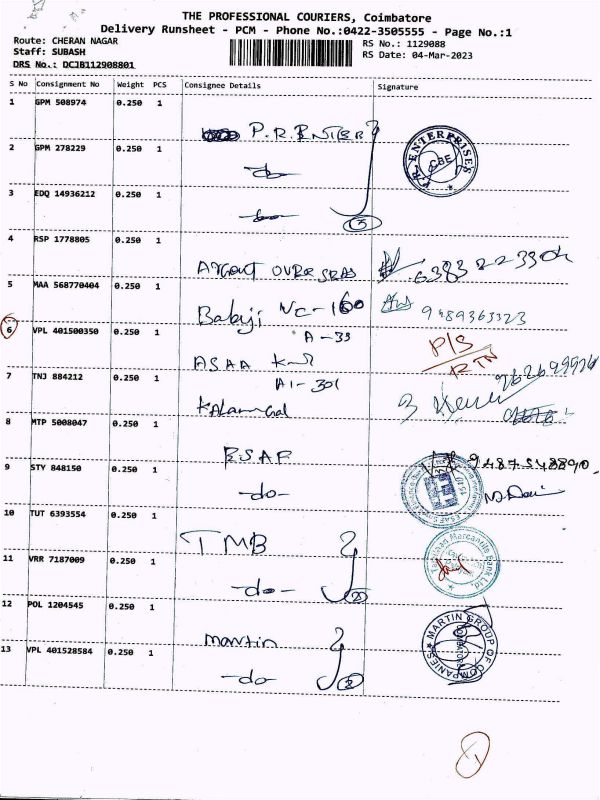 THE PROFESSIONAL COURIERS, Coimbatore
Delivery Runsheet - PCM - Phone No.:0422-3505555 - Page No.:1
Route: CHERAN NAGAR RS No.: 1129088
Staff: SUBASH RS Date: 04-Mar-2023
DRS No.: DCJB112908801
S No Consignment No Weight PCS Consignee Details Signature
1 GPM 508974 0.250 1
P.R.ENTER
2 GPM 278229 0.250 1
-do-
P.R. ENTERPRISES CBE
3 EDQ 14936212 0.250 1
-do- 3
4 RSP 1778805 0.250 1
6383223304
5 MAA 568770404 0.250 1
Babuji NC-160 9489363323
6 VPL 401500350 0.250 1
A-33 P/S
ASAA RTN
7 TNJ 884212 0.250 1
A1-301
8 MTP 5008047 0.250 1
ESAF
9 STY 848150 0.250 1
-do-
10 TUT 6393554 0.250 1
TMB
Tamilnad Mercantile Bank Ltd
11 VRR 7187009 0.250 1
-do- 2
12 POL 1204545 0.250 1
Martin
MARTIN GROUP OF COMPANIES
13 VPL 401528584 0.250 1
-do- 2
1